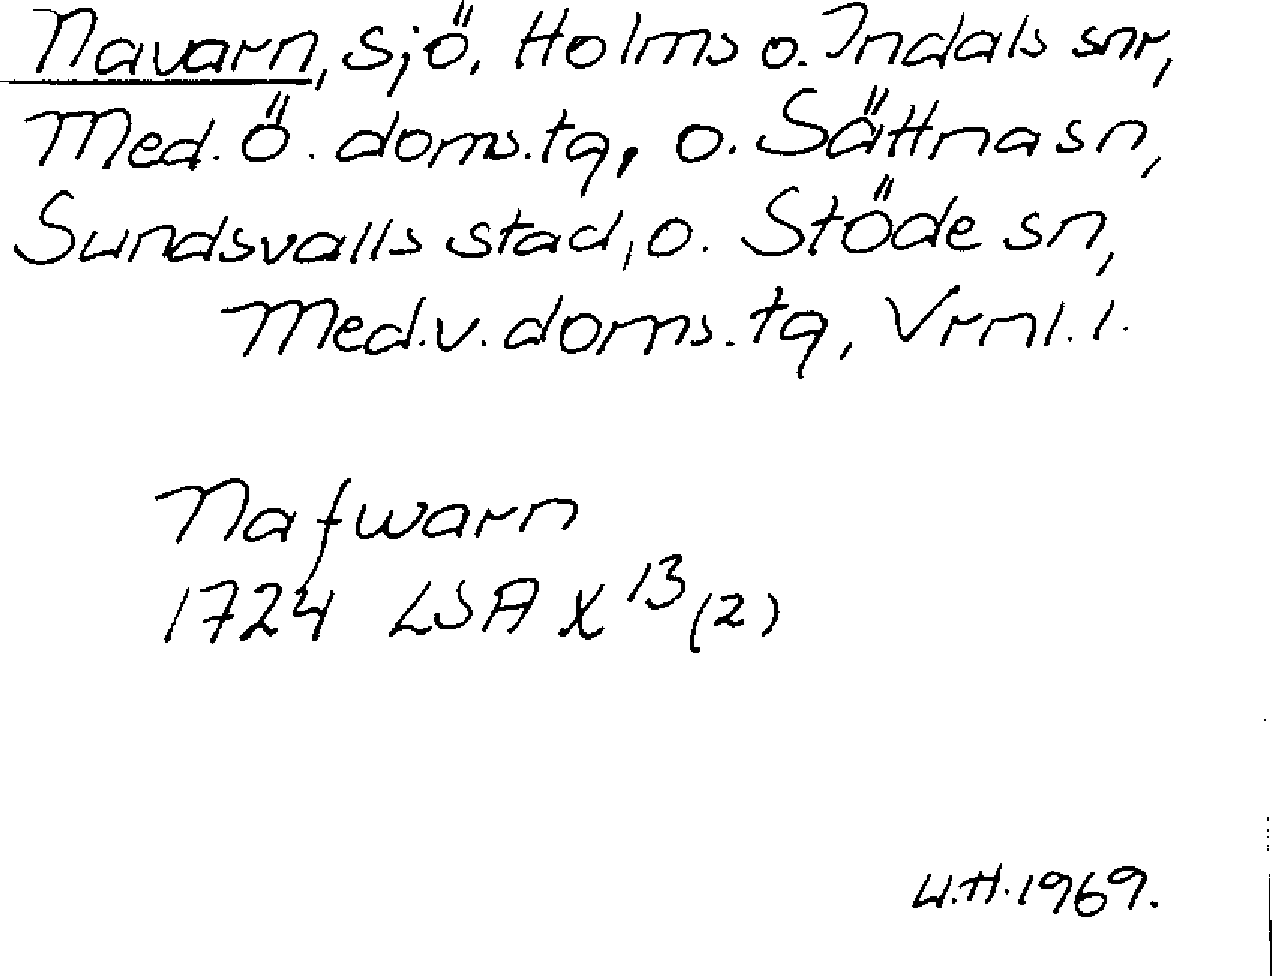 Navarn, sjö, Holms o. Indals snr,
Med. ö. doms.tg, o. Sättna sn,
Sundsvalls stad, o. Stöde sn,
Med.v. doms.tg, Vrnl. l.
Nafwarn
1724 LSA X 13 (2)
U.H. 1969.